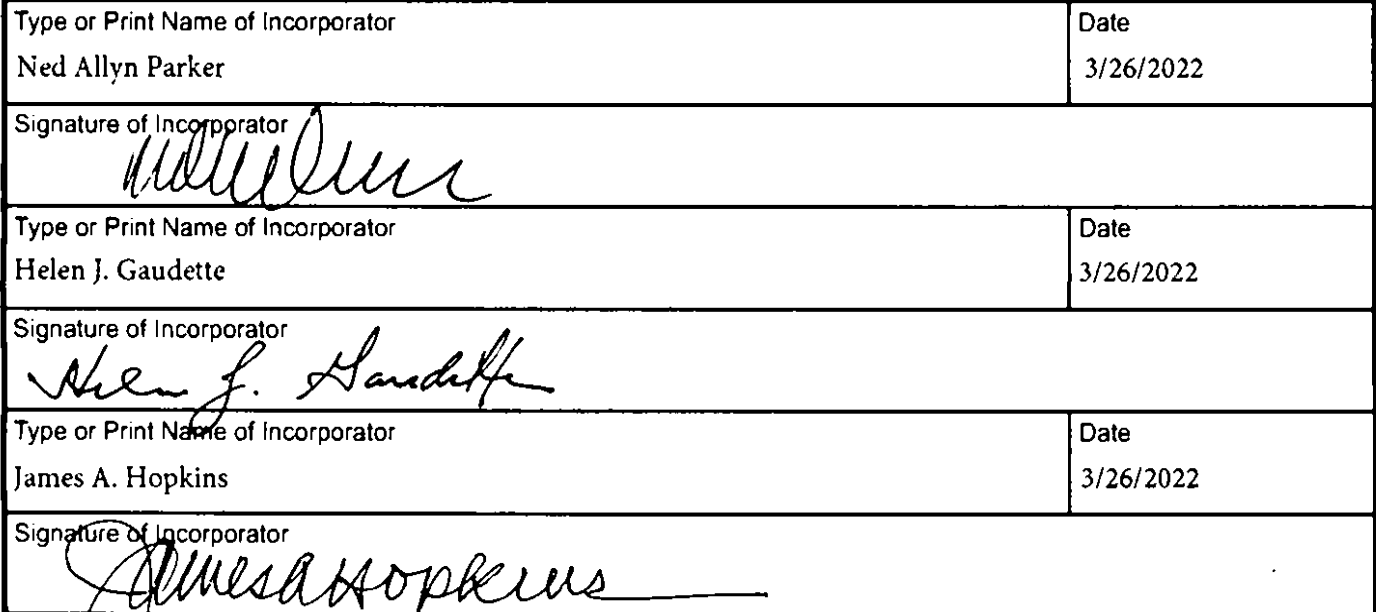 Type or Print Name of Incorporator Date
Ned Allyn Parker 3/26/2022
Signature of Incorporator
Type or Print Name of Incorporator Date
Helen J. Gaudette 3/26/2022
Signature of Incorporator
Helen J. Gaudette
Type or Print Name of Incorporator Date
James A. Hopkins 3/26/2022
Signature of Incorporator
James A Hopkins